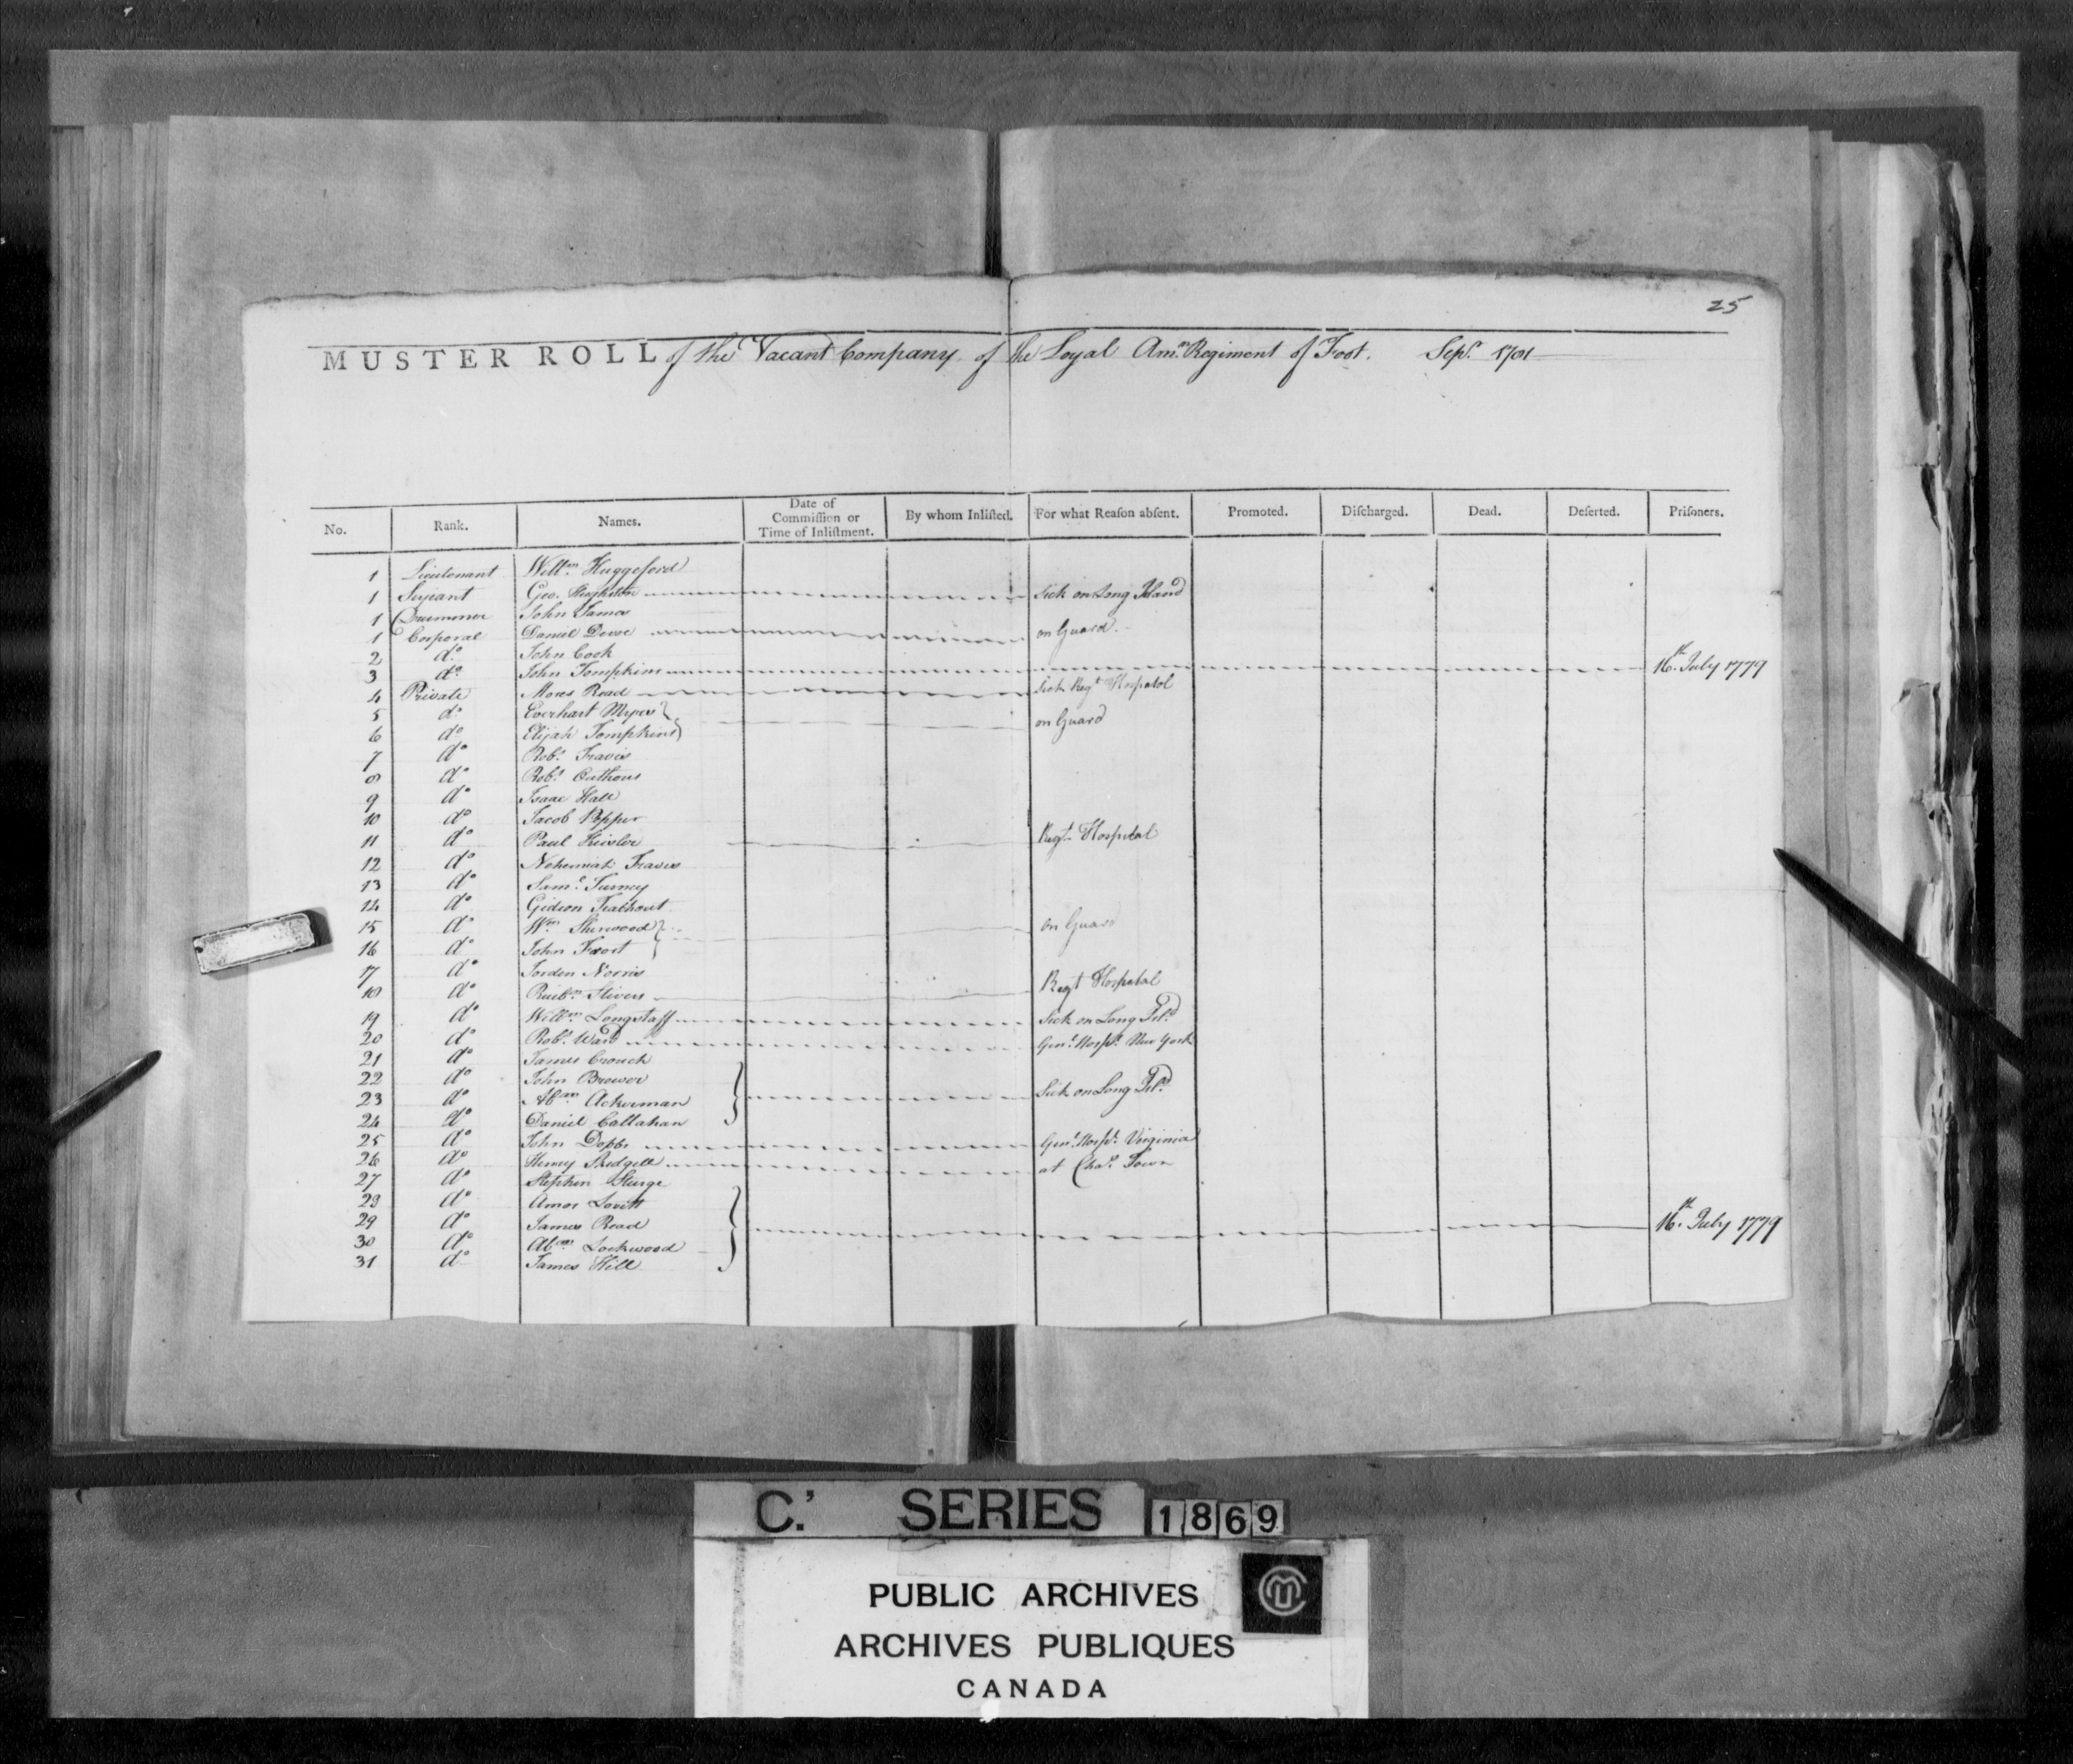 25
MUSTER ROLL of the Vacant Company of the Loyal Amn Regiment of Foot. Sepr 1781
No. Rank. Names. Date of Commiſſion or Time of Inliſtment. By whom Inliſted. For what Reaſon abſent. Promoted. Diſcharged. Dead. Deſerted. Priſoners.
1 Lieutenant Willm Huggeford
1 Serjeant Geo. Sick on Long Island
1 Drummer John James
1 Corporal Daniel on Guard
2 do John Cook
3 do John Tompkins 16th July 1779
4 Private Moses Read Sick Regt Hospital
5 do Everhart Myers
6 do Elijah Tompkins on Guard
7 do Robt Travis
8 do Robt Outhous
9 do Isaac Hall
10 do Jacob Popper
11 do Paul Regt Hospital
12 do Nehemiah Travis
13 do Saml Turney
14 do Gideon
15 do Wm Sherwood on Guard
16 do John Frost
17 do Jorden Norris
18 do Reubn Stivers Regt Hospital
19 do Willm Longstaff Sick on Long Isld
20 do Robt Ward Genl Hospl New York
21 do James Crouch
22 do John Brewer
23 do Abm Ackerman Sick on Long Isld
24 do Daniel Callahan
25 do John Dobbs Genl Hospl Virginia
26 do Henry Skidgell at Chas Town
27 do Stephen Sturge
28 do Amos Lovitt
29 do James Read 16th July 1779
30 do Abm Lockwood
31 do James Hill
C.' SERIES 1869
PUBLIC ARCHIVES
ARCHIVES PUBLIQUES
CANADA